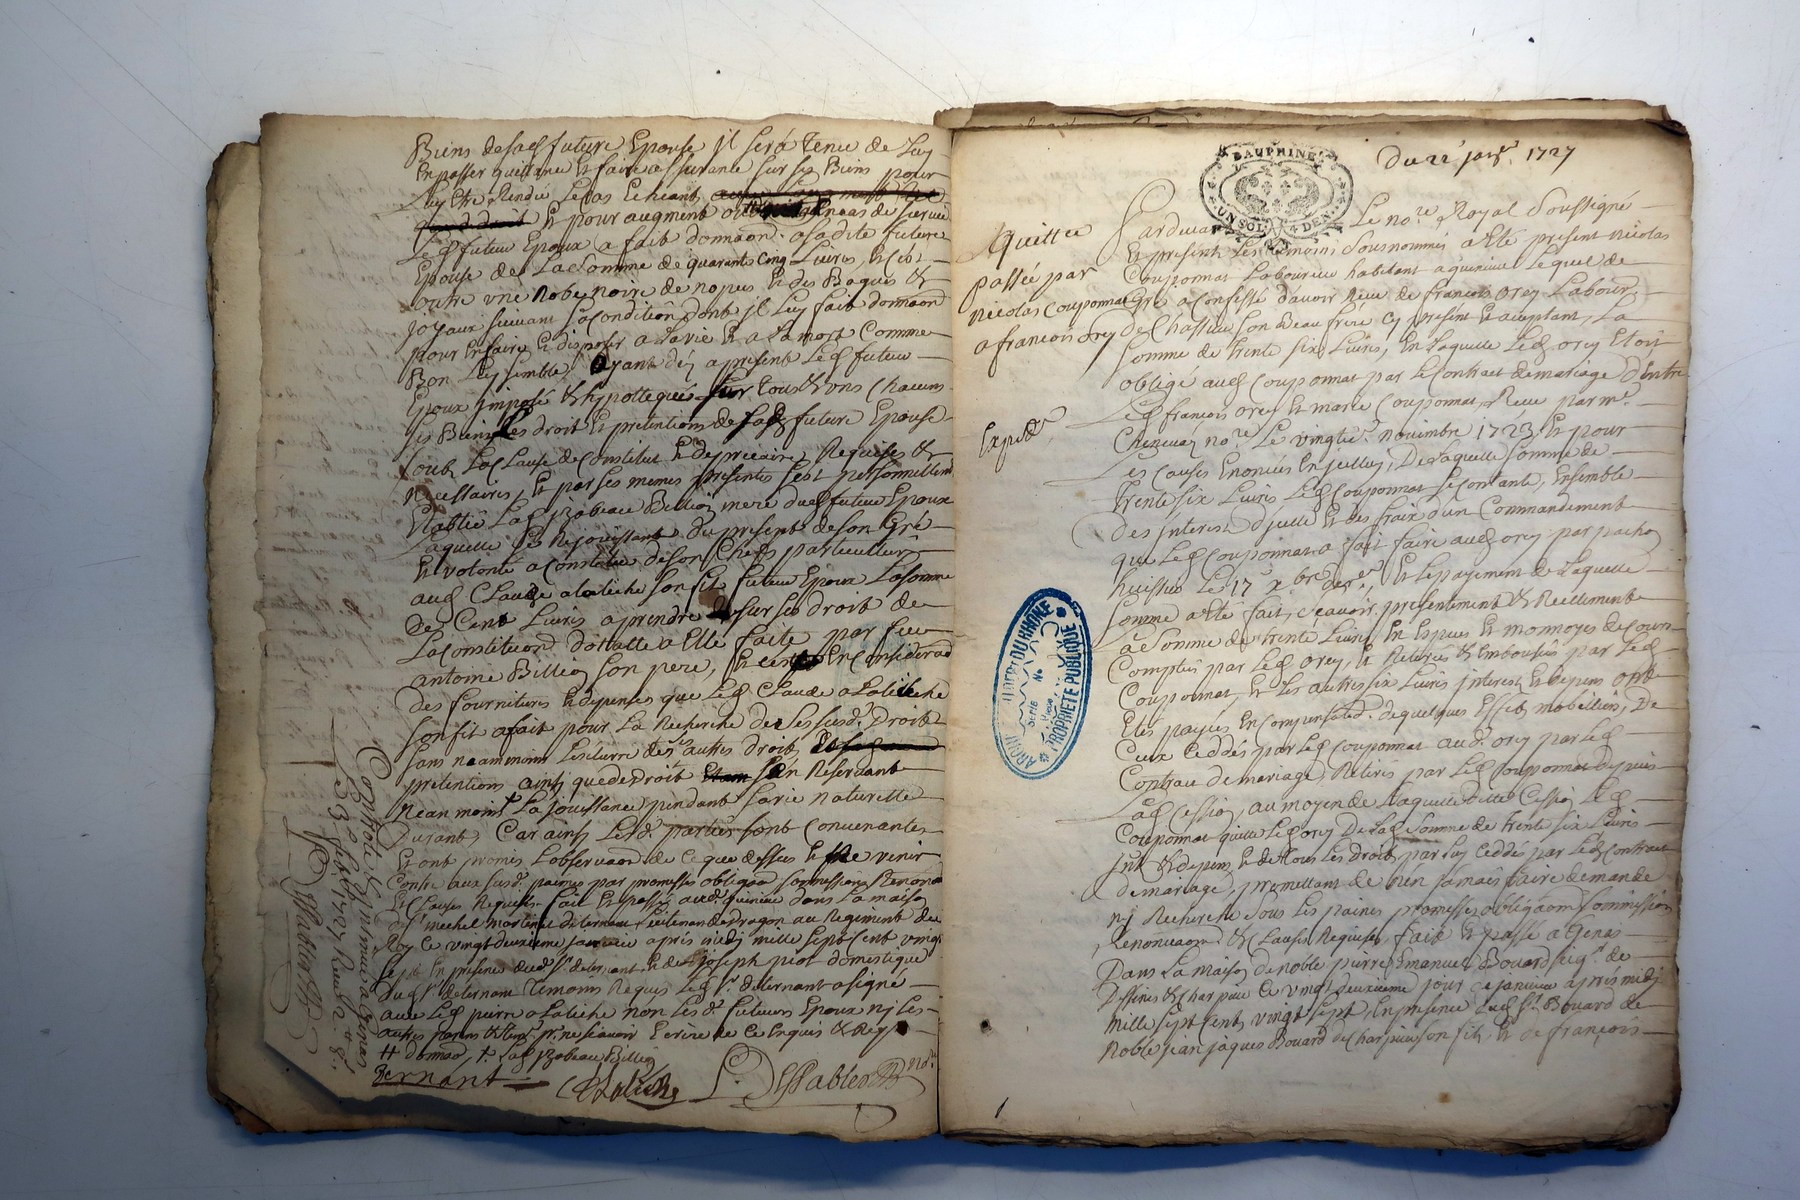 Biens de sad future Epouse jl sera Tenu de Luy
En passer quittance Et faire assurance sur ses Biens pour
Luy Etre Rendüe Le cas Echeant
Et pour augment de survie
Led futeur Epoux a fait donnaon a sadite future
Epouse de La Somme de quarante Cinq Livres, Et c'est
outre une Robe noire de nopces Et des Bagues &
joyaux suivant sa condition dont jl Luy fait donnaon
pour En faire Et disposer a la vie Et a La mort Comme
Bon Luy semble, Ayant dez a present Led futeur
Epoux jmposé & hypottequé sur tous & uns chacuns
ses Biens Les droit Et pretentions de sad future Epouse
soub La Clause de Constitut Et de precaire Requises &
Necessaires, Et par ses memes presentes s'est personnellemt
Etablie Lad jzabeau Billion mere dud futeur Epoux
Laquelle se Rejouissant du present de son Gré
Et volonté a constitué de son Chef particulier
aud Claude alatiche son fils futeur Epoux La somme
de Cent Livres a prendre sur ses droit de
La constitution dottalle a Elle faite par feu
antoine Billion son pere, Et c'est En considerаon
des fournitures Et depenses que Led Claude alatiche
son fils a fait pour La Recherche de Ses susd. Droits
sans neanmoins Lesclurre des autres droit,
pretentions ainsi que de droit s'en Reservant
Neanmoins La jouissance pendant sa vie naturelle
Durant, Car ainsi Lesd. parties sont Convenantes
Et ont promis L'observaon de Ce que dessus Et ne venir
Contre aux susd. peines par promesses obligaon soumissions Renonаon
Et Clauses Requises. fait Et passé aud. quincieu dans La maison
de sr michel martin de ternant Lieutenant de dragon au Regiment du
Roy Ce vingt deuxieme janvier apres midy mille sept cent vingt
sept En presence dud sr de ternant Et de joseph piot domestique
dud sr de ternant Temoins Requis Led sr. de ternant a signé
avec Led pierre alatiche non Lesd. futeurs Epoux ny Les
autres parties &
donnаon, Lad jzabeau Billion
Ternant
C Alatiche
L. Despables Nore
Controllé
Le 3e febr. 1727 Receu
Despables
DAUPHINE
UN SOL 4 DEN.
Du 22e janr. 1727
Quittce
passée par
Nicolas Couponnat
a francois orcy
Expedé
Pardevant Le nore Royal Soussigné
Et presents Les temoins sousnommés a Eté present Nicolas
Couponnat Laboureur habitant a quincieu Lequel de
Gré a Confessé d'avoir Receu de francois orcy Labourr
de Chassieu son Beau frere Cy present Et acceptant, La
Somme de trente six Livres, En Laquelle Led orcy Etoit
obligé aud Couponnat par Le Contract de mariage D'Entre
Led francois orcy Et marie Couponnat, Receu par me.
nore Le vingtie. novembre 1723, Et pour
Les causes Enoncées En jcelluy, De Laquelle Somme de
trente six Livres Led Couponnat se contante, Ensemble
Des Interest d'jcelle Et des fraix d'un Commandement
que Led Couponnat a fait faire aud orcy par
huissier Le 17e xbre der., Et Le payement de Laquelle
somme a Eté fait, sçavoir, presentement & Reellement
La Somme de trente Livres En Especes Et monnoyes de Cours
Comptés par Led Orcy, Et Retirés & Emboursés par Led
Couponnat, Et Les autres six Livres jnterest & depens ont
Etés payes En Compensаon de quelques Effets mobilliers, De
Ceux Ceddés par Led Couponnat aud. orcy par Led
Contract de mariage, Retirés par Led Couponnat depuis
Lad Cession, au moyen de Laquelle ditte Cession Led
Couponnat quitte Led orcy De Lad Somme de trente six Livres
Int. & depens Et de tous Les droits par Luy Ceddés par Led Contract
de mariage, promettant de n'en jamais faire demande
ny Recherche sous Les peines promesses obligaons Soumission
Renonciaon & clauses Requises, fait Et passé a Genas
Dans La maison de noble pierre Emanuel Bouard seigr. de
& Charpieu Ce vingt deuxieme jour de janvier après midy
mille sept Cents vingt sept, En presence dud sr. Bouard de
Noble jean jaques Bouard de Charpieu son fils, Et de françois
ARCHIVES DU RHONE
SERIE
No
PROPRIÉTÉ PUBLIQUE